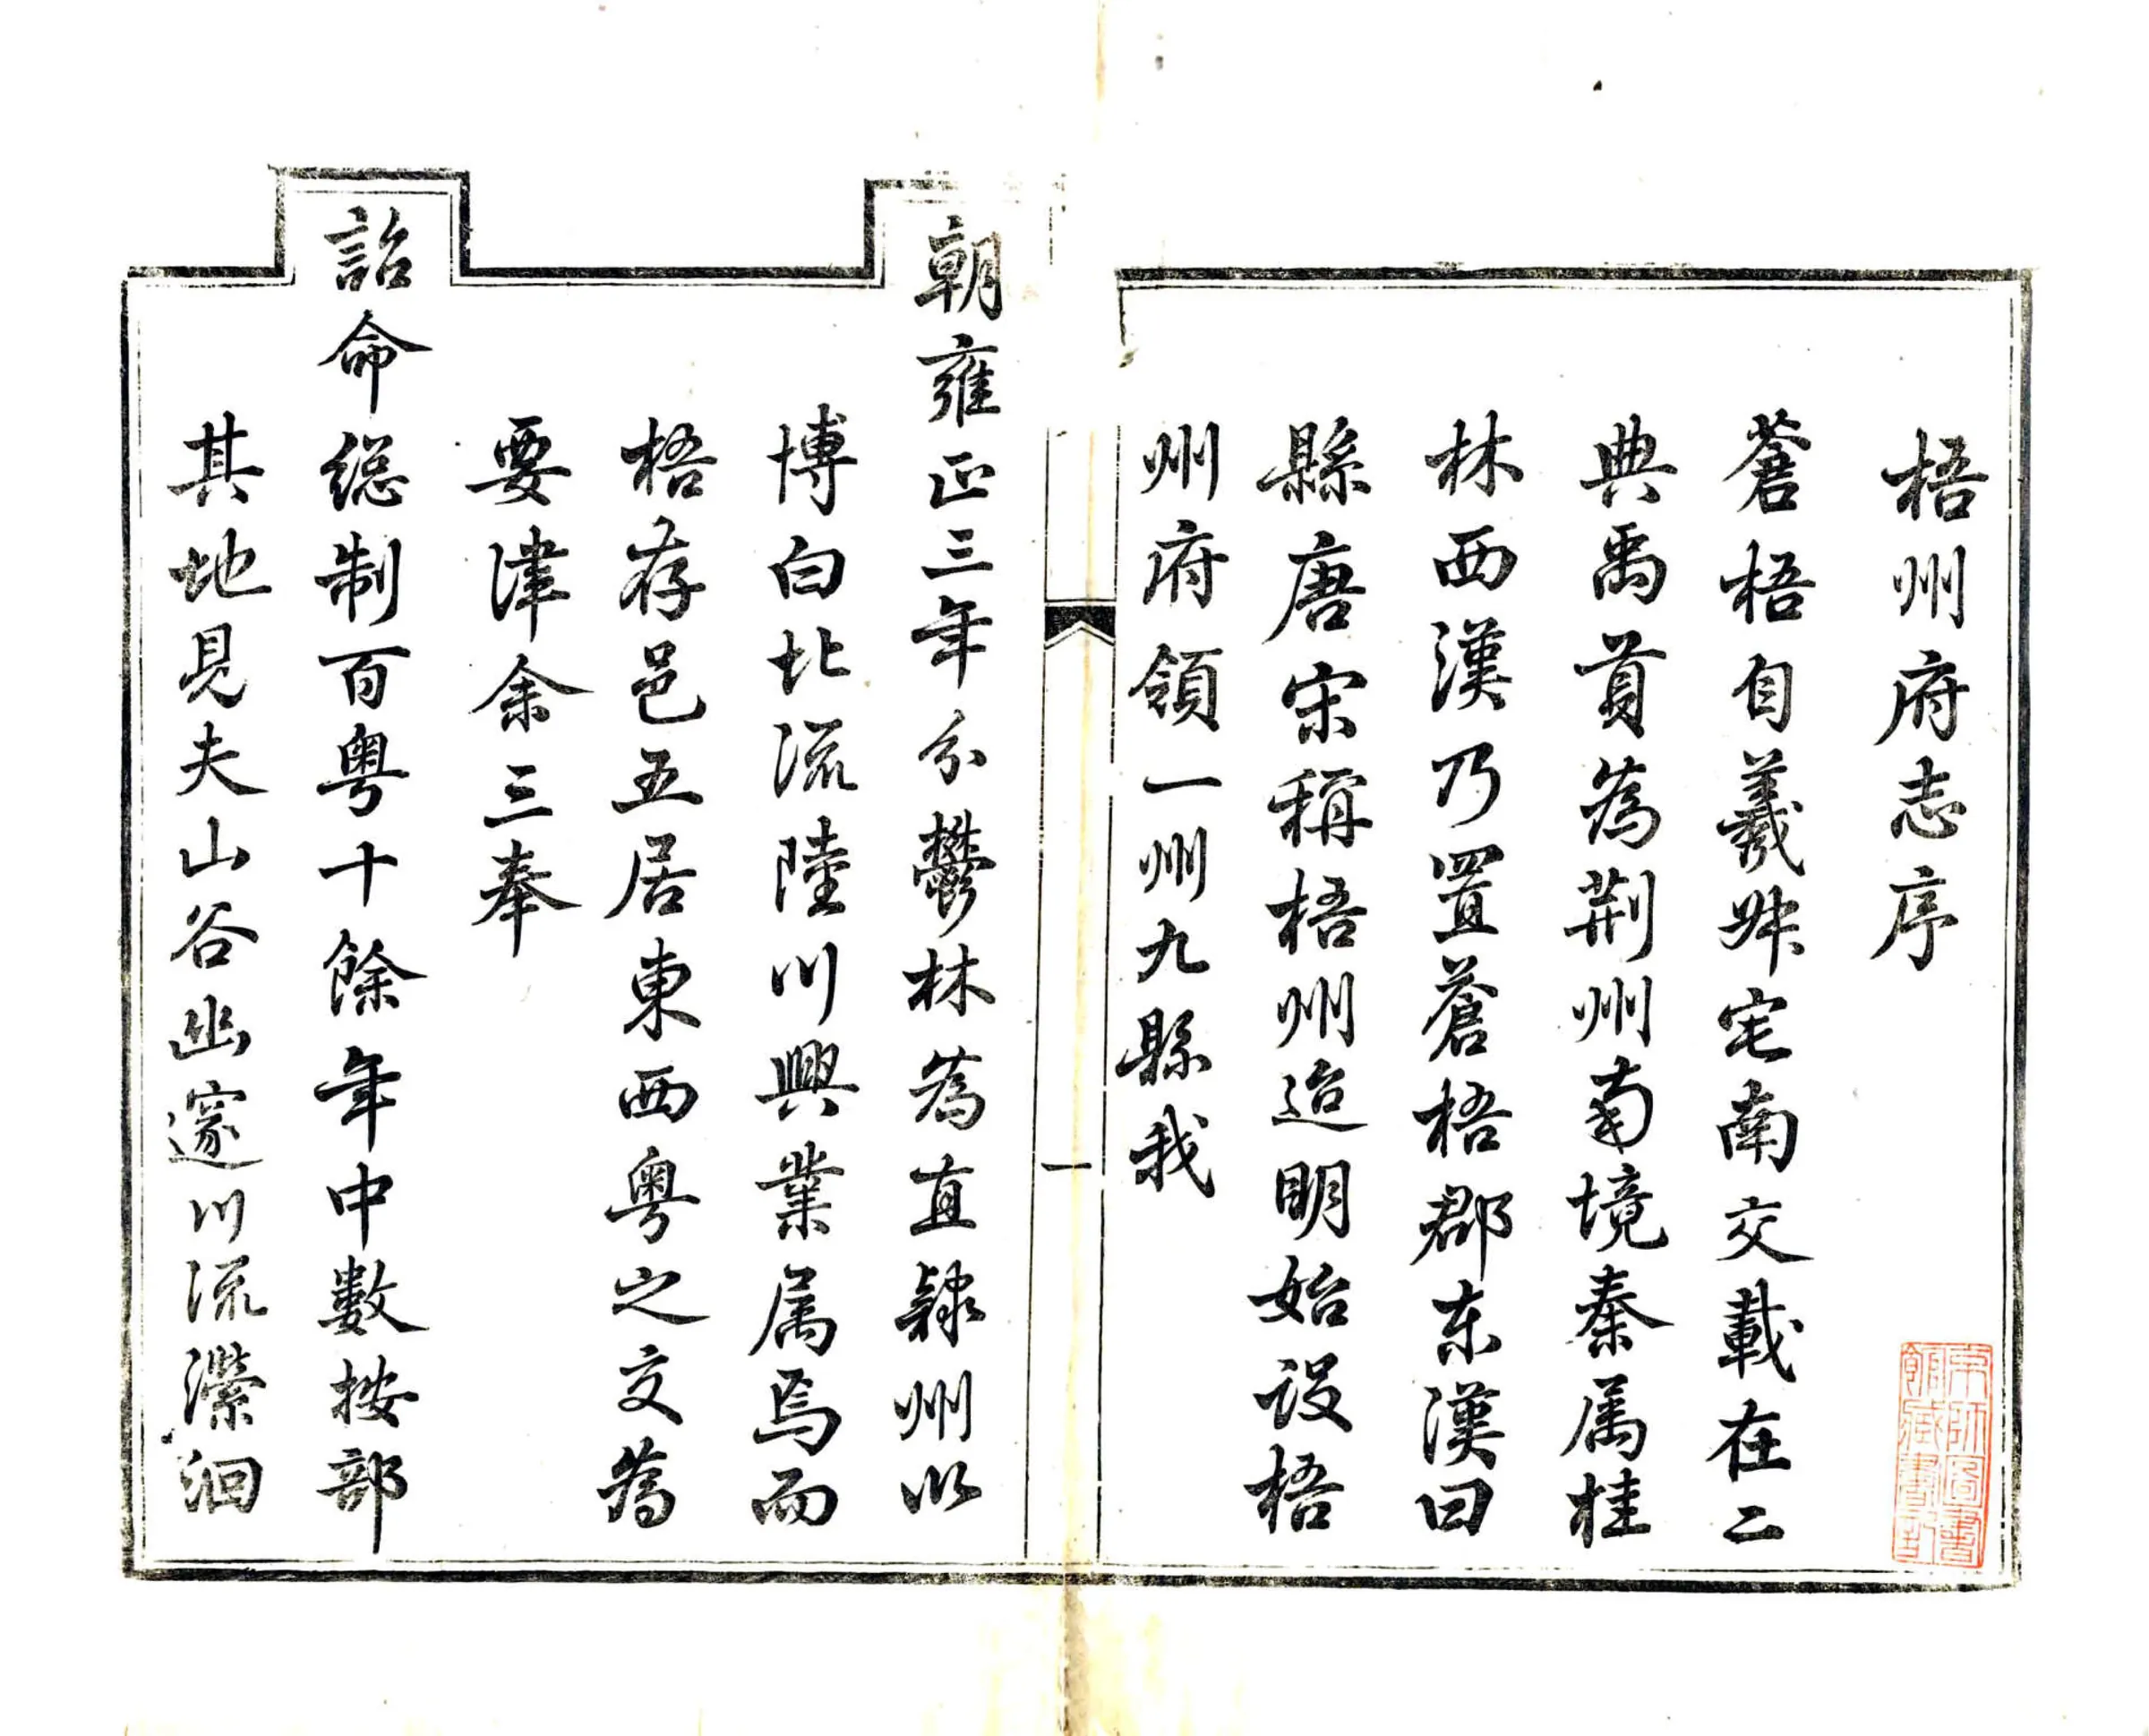 梧州府志序
蒼梧自羲叔宅南交載在二
典禹貢為荆州南境秦属桂
林西漢乃置蒼梧郡东漢曰
縣唐宋稱梧州迨明始設梧
州府領一州九縣我
朝雍正三年分鬱林為直隸州以
博白北流陸川興業属焉而
梧存邑五居東西粵之交為
要津余三奉
詔命總制百粵十餘年中數按部
其地見夫山谷幽邃川流瀠洄
一